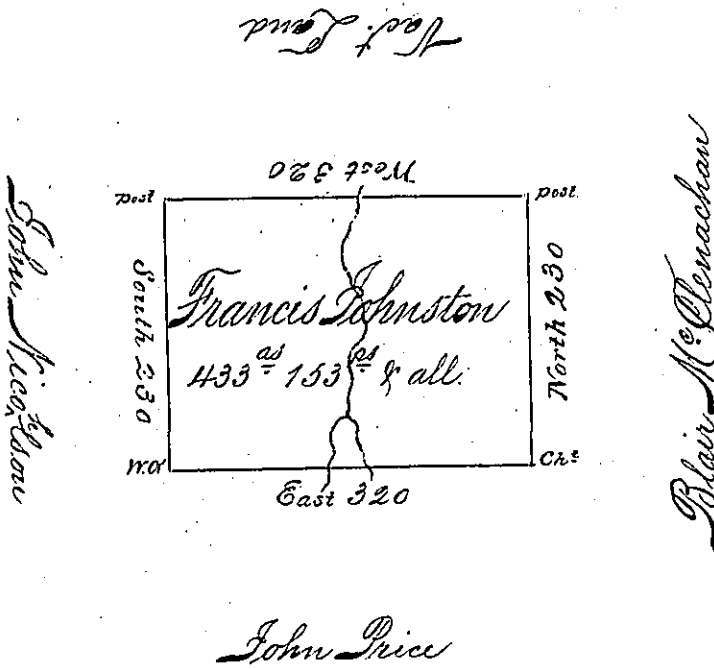 Vac.t Land
West 320
post
post.
John Nicholson
South 230
Francis Johnston
433 as 153 ps & all.
North 230
Blair McClenachan
W.O
Ch.t
East 320
John Price